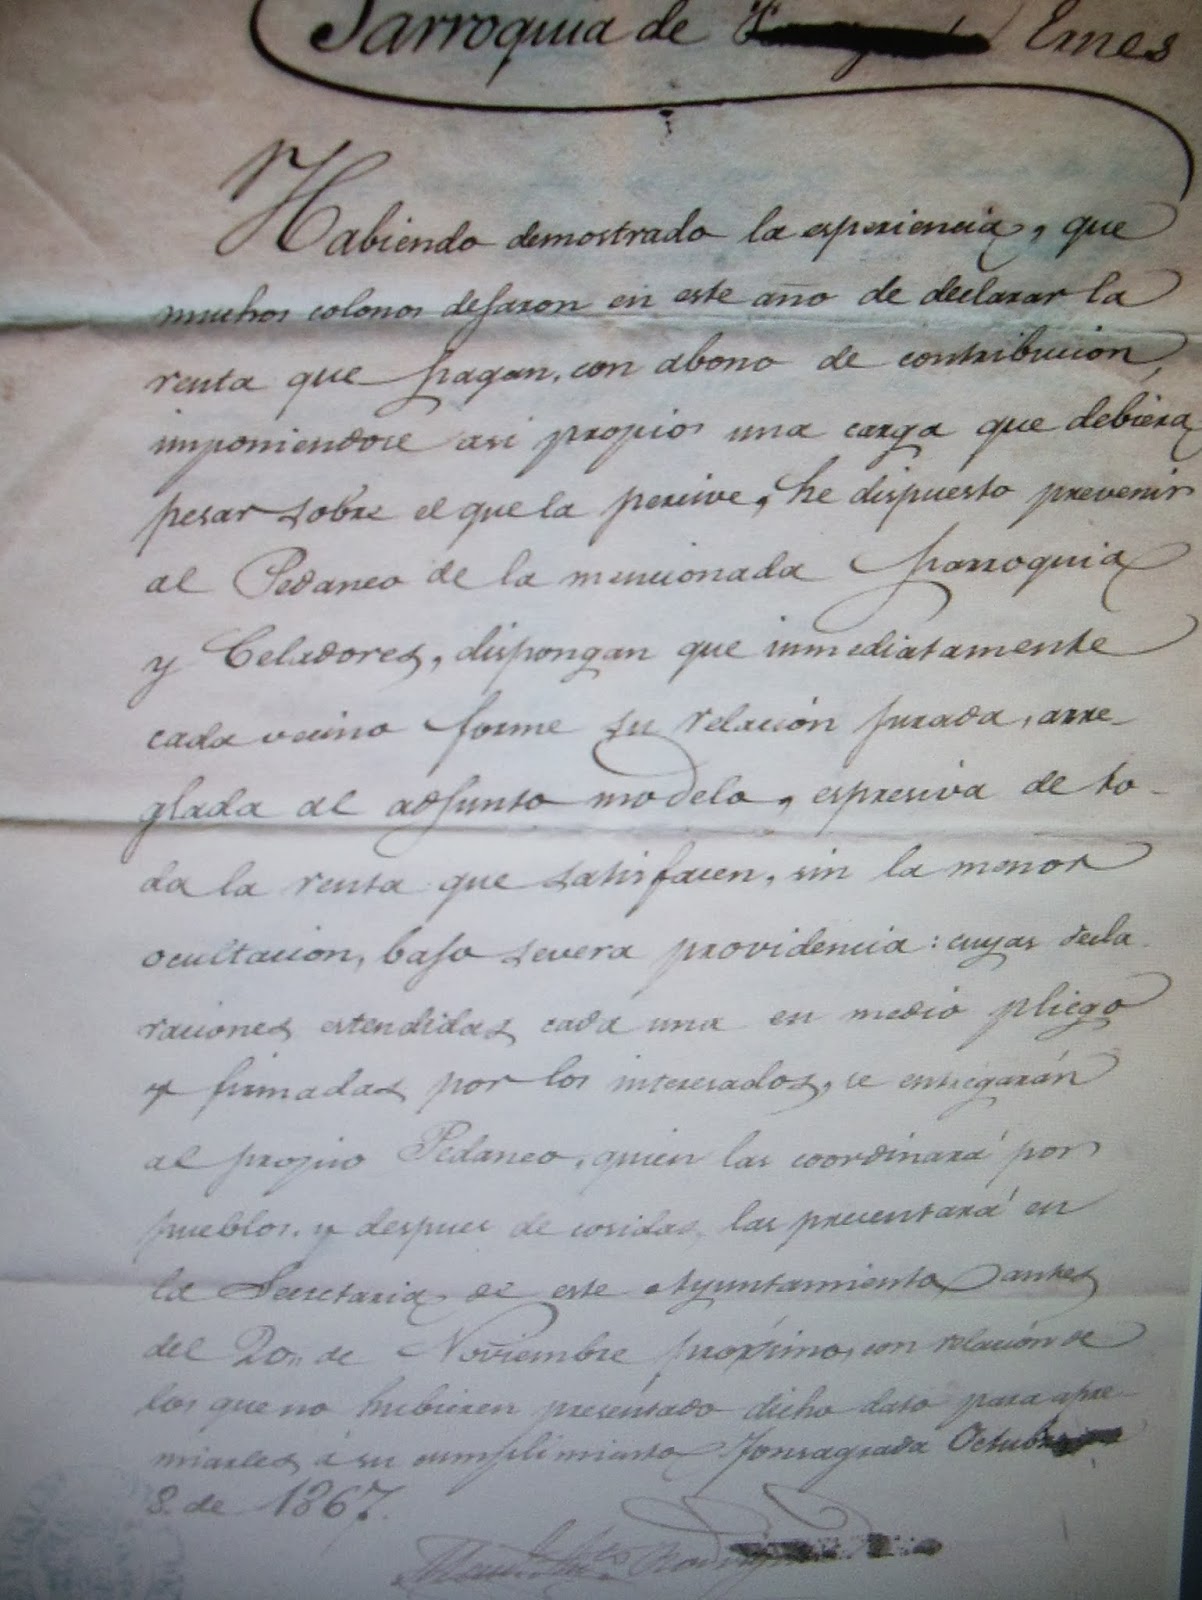 Parroquia de Emes
Habiendo demostrado la esperiencia, que
muchos colonos dejaron en este año de declarar la
renta que pagan, con abono de contribución,
imponiendose asi propios una carga que debiera
pesar sobre el que la percive, he dispuesto prevenir
al Pedaneo de la mencionada parroquia
y Celadores, dispongan que inmediatamente
cada vecino forme su relación jurada, arre-
glada al adjunto modelo, espresiva de to-
da la renta que satisfacen, sin la menor
ocultacion, bajo severa providencia: cuyas decla
raciones estendidas cada una en medio pliego
y firmadas por los interesados, se entregarán
al propio Pedaneo, quien las coordinará por
pueblos, y despues de cosidas, las presentará en
la Secretaria de este Ayuntamiento antes
del 20,, de Noviembre próximo, con relación de
los que no hubieren presentado dicho dato para apre-
miarles á su cumplimiento Fonsagrada Octubre
8. de 1867.